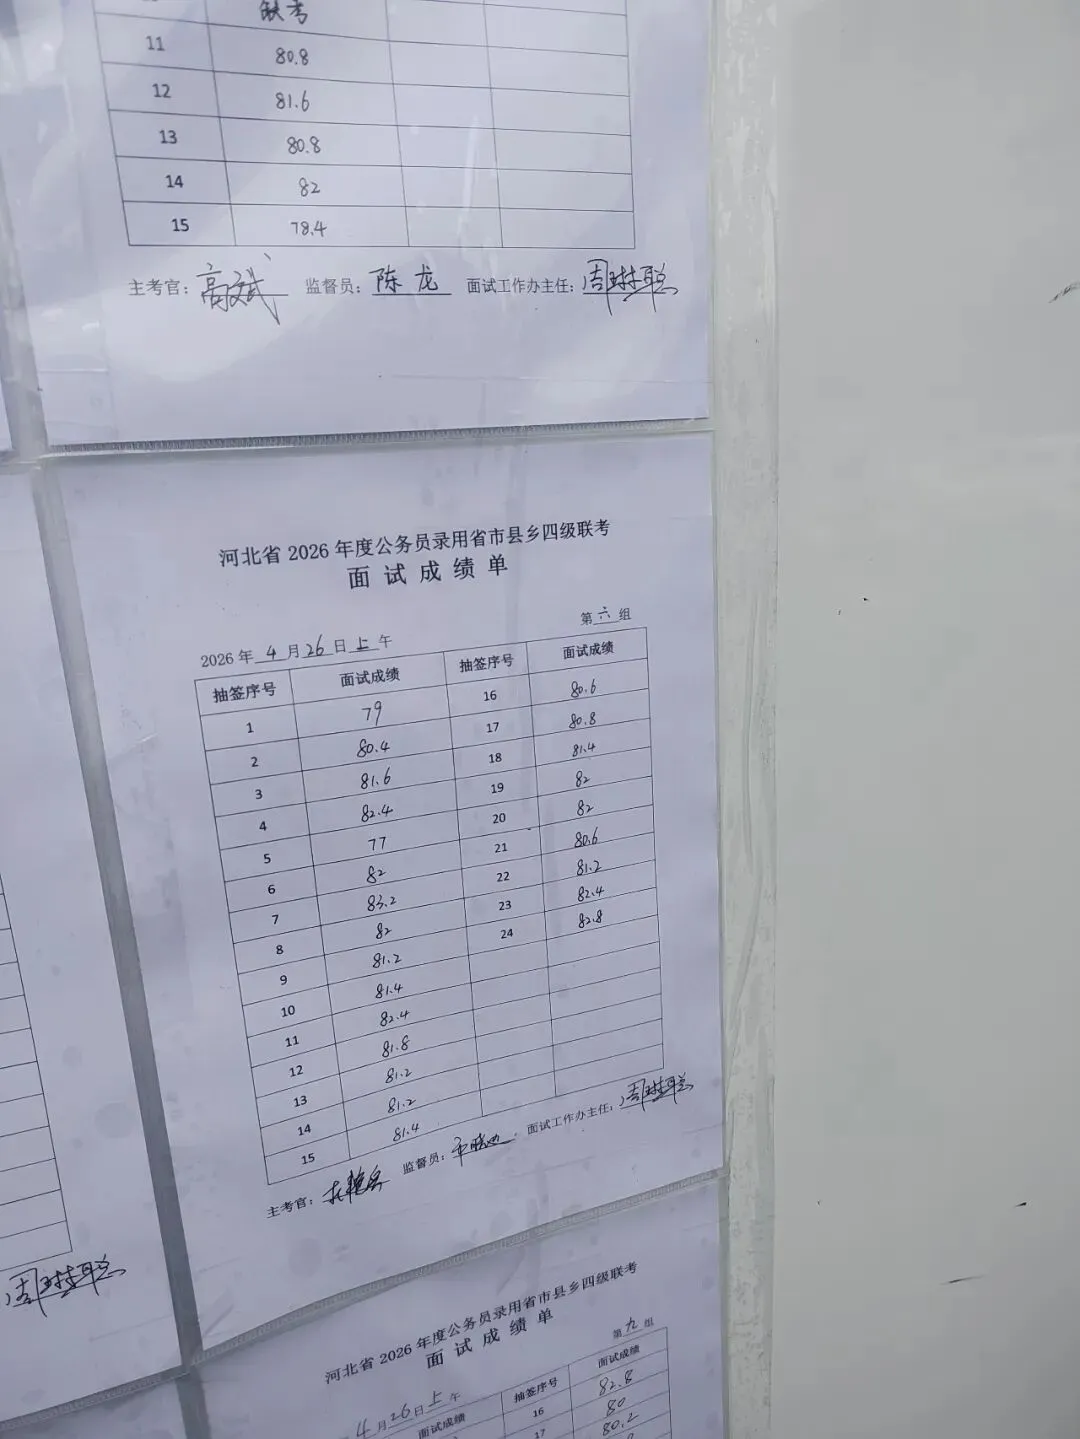 缺考
11 80.8
12 81.6
13 80.8
14 82
15 78.4
主考官： 监督员：陈龙 面试工作办主任：
河北省2026年度公务员录用省市县乡四级联考
面试成绩单
第六组
2026年4月26日上午
抽签序号 面试成绩 抽签序号 面试成绩
1 79 16 80.6
2 80.4 17 80.8
3 81.6 18 81.4
4 82.4 19 82
5 77 20 82
6 82 21 80.6
7 83.2 22 81.2
8 82 23 82.4
9 81.2 24 82.8
10 81.4
11 82.4
12 81.8
13 81.2
14 81.2
15 81.4
主考官： 监督员： 面试工作办主任：
河北省2026年度公务员录用省市县乡四级联考
面试成绩单
第九组
4月26日上午
面试成绩 抽签序号 面试成绩
16 82.8
17 80
80.2